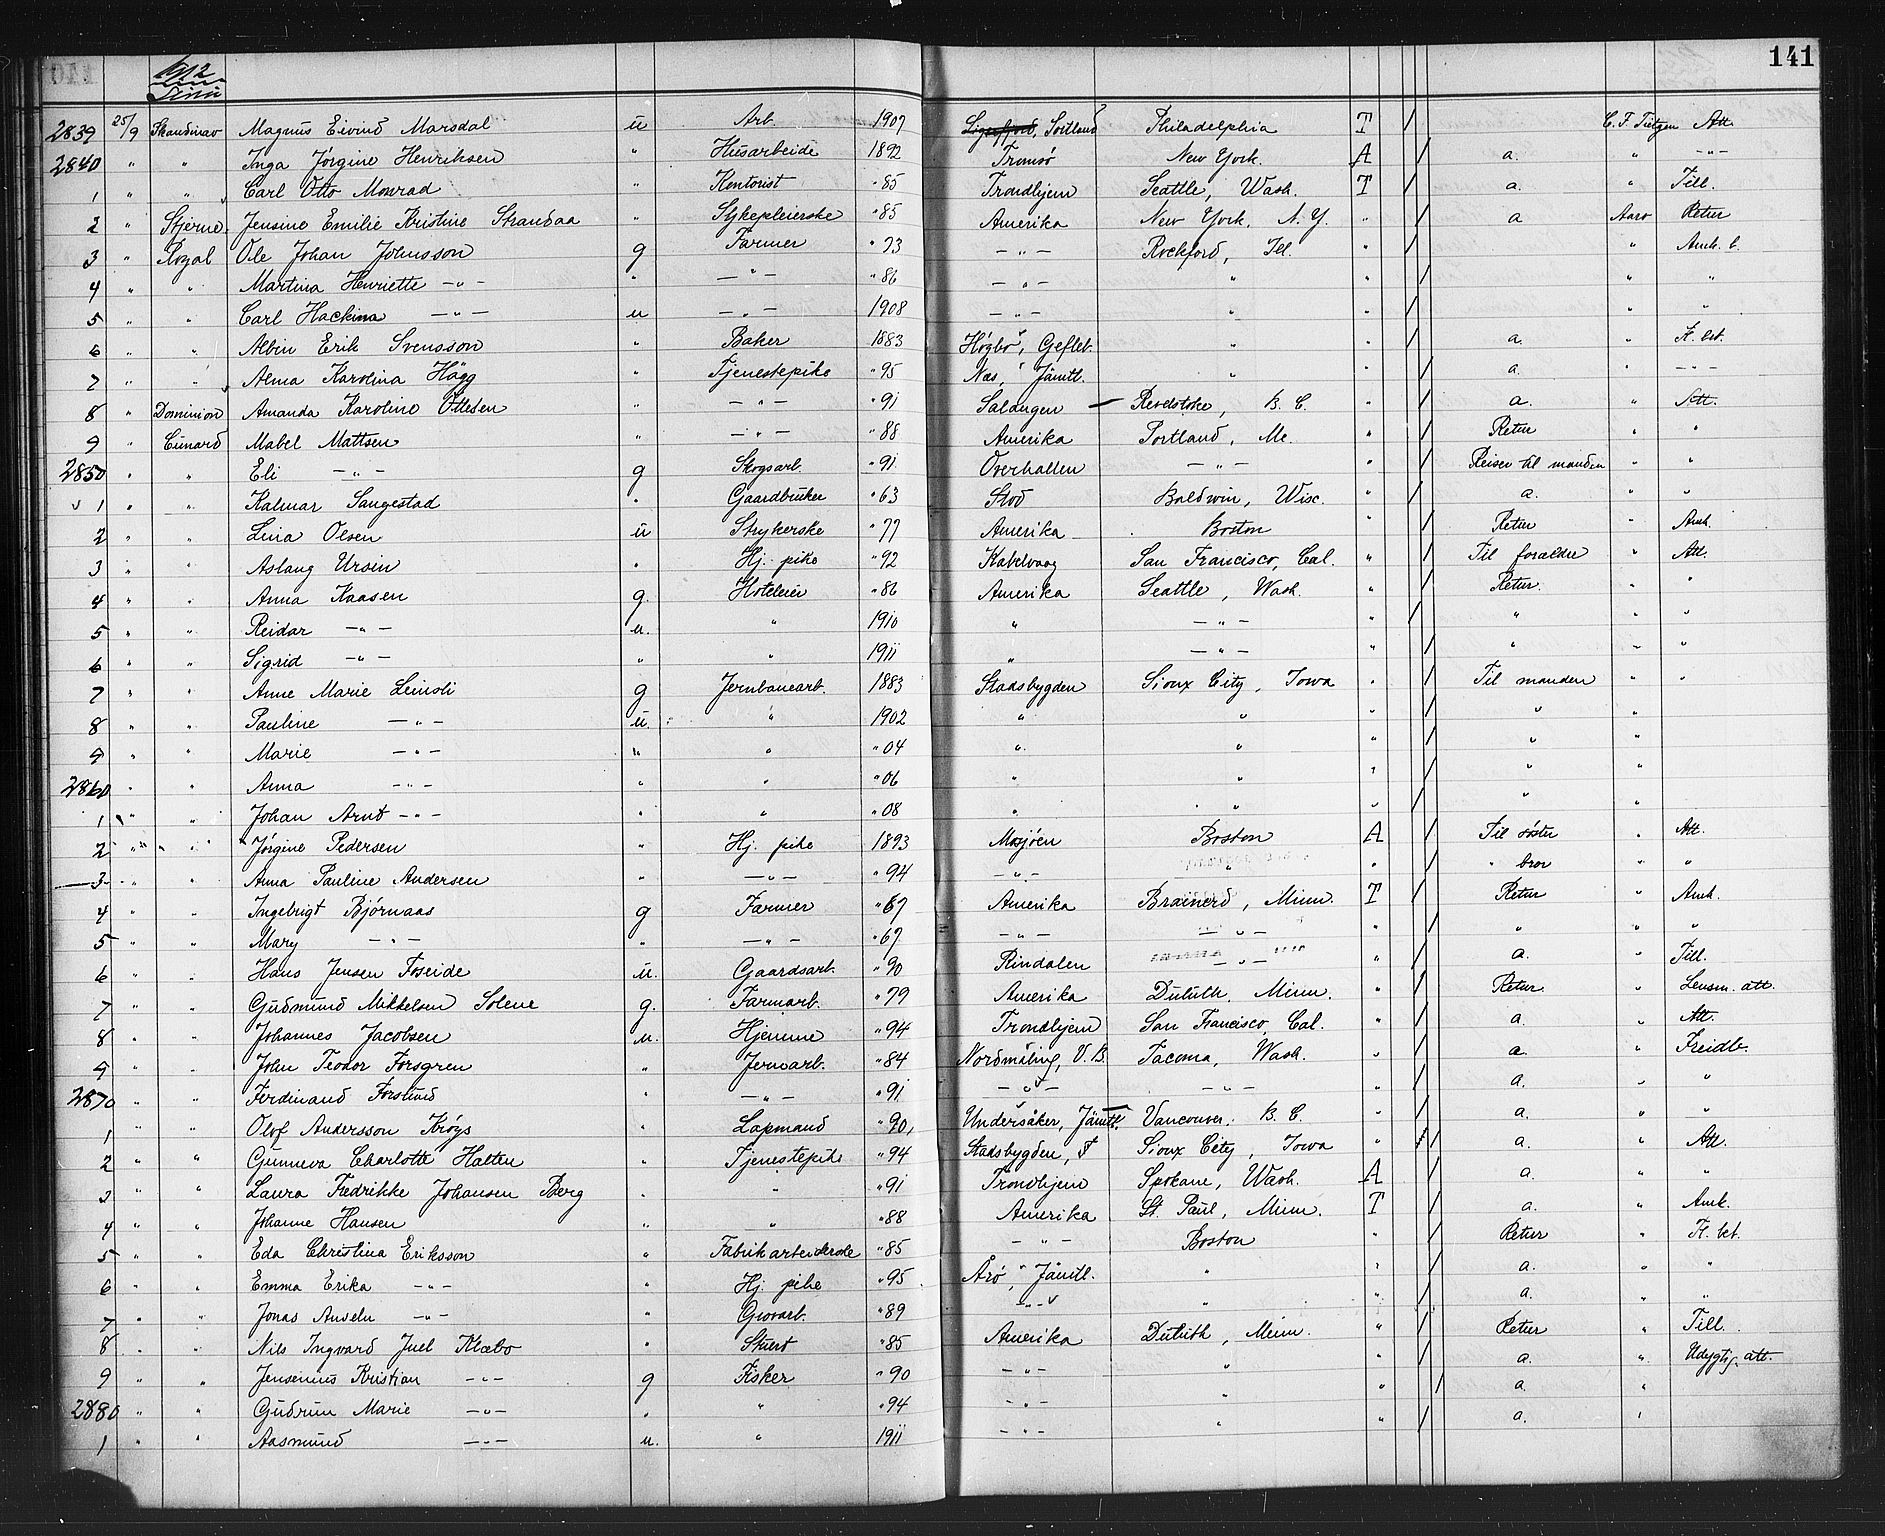 141
1912 Linie
2839 25/9 Skandinav Magnus Eivind Marsdal u Arb. 1907 Sortland Philadelphia T / C. F. Tietgen Att.
2840 " " Inga Jørgine Henriksen " Husarbeide 1892 Tromsø New York. A / a. " -"-
1 " " Carl Otto Monrad " Kontorist "85 Trondhjem Seattle, Wash. T / a. " Till.
2 " Stjerne Jensine Emilie Kristine Strandaa " Sykepleierske "85 Amerika New York, N. Y. " / a Aaro Retur
3 " Royal Ole Johan Johnsson g Farmer "73 -"- Rockford, Ill. " / " Amk. b.
4 " " Martina Henriette -"- " -"- "86 -"- " " / " "
5 " " Carl Hackina -"- u -"- 1908 -"- " " / " "
6 " " Albin Erik Svensson " Baker 1883 Högbo, Gefleb. " " / a. " Fl. bet.
7 " " Alma Karolina Hägg " Tjenestepike "95 Näs, Jämtl. " " / a. " -"-
8 " Dominion Amanda Karoline Ottesen " -"- "91 Salangen Revelstoke, B. C. " / a. " Att.
9 " Cunard Mabel Mattsen " -"- "88 Amerika Portland, Me. " / Retur " "
2850 " " Eli -"- g Skogsarb. "91 Overhallen -"- " / Reiser til manden " "
1 " " Kalmar Sangestad " Gaardbruker "63 Stod Baldwin, Wisc. " / a. " "
2 " " Lina Olsen u Strykerske "77 Amerika Boston " / Retur " Amk.
3 " " Aslaug Ursin " Hj. pike "92 Kabelvaag San Francisco, Cal. " / Til forældre " Att.
4 " " Anna Kaasen g. Hoteleier "86 Amerika Seattle, Wash. " / Retur. " "
5 " " Reidar -"- u. " 1910 " -"- " / " " "
6 " " Sigrid -"- " " 1911 " -"- " / " " "
7 " " Anne Marie Leinsli g Jernbanearb. 1883 Stadsbygden Sioux City, Iowa " / Til manden " "
8 " " Pauline -"- u. " 1902 " " " / " "
9 " " Marie -"- " " "04 " " " / " "
2860 " " Anna -"- " " "06 " " " / " "
1 " " Johan Arnt -"- " " "08 " " " / " "
2 " " Jørgine Pedersen " Hj. pike 1893 Mosjøen Boston A / Til søster " Att.
3 " " Anna Pauline Andersen " -"- "94 -"- " " / " bror " "
4 " " Ingebrigt Bjørnaas g Farmer "67 Amerika Brainerd, Minn. T / Retur " Amk.
5 " " Mary -"- " -"- "67 -"- -"- " / " " "
6 " " Hans Jensen Foseide u. Gaardsarb. "90 Rindalen -"- " / a. " Till.
7 " " Gudmund Mikkelsen Solene g. Farmarb. "79 Amerika Duluth, Minn. " / Retur " Lensm. att.
8 " " Johannes Jacobsen u. Hjemme "94 Trondhjem San Francisco, Cal. " / a. " Att.
9 " " John Teodor Forsgren " Jernarb. "84 Nordmaling, V. B. Tacoma, Wash. " / a. " Freidb.
2870 " " Ferdinand Forslund " -"- "91 -"- -"- " / a. " "
1 " " Olof Andersson Krøys " Lapmand "90 Undersåker, Jämtl. Vancouver. B. C. " / a. " "
2 " " Gunneva Charlotte Halten " Tjenestepike "94 Stadsbygden, Sioux City, Iowa " // a. " Att.
3 " " Laura Fredrikke Johansen Berg " " "91 Trondhjem Spokane, Wash. A / a. " "
4 " " Johanne Hansen " " "88 Amerika St. Paul, Minn. T / a. " Amk.
5 " " Eda Christina Eriksson " Fabrikarbeiderske "85 -"- Boston " / Retur " Fl. bet.
6 " " Emma Erika -"- " Hj. pike "95 Jämtl. " " / a. " "
7 " " Jonas Anseln -"- " Grovarb. "89 -"- " " / a. " "
8 " " Nils Ingvard Juel Klæbo " Stuert "85 Amerika Duluth, Minn. " / Retur " Till.
9 " " Jensenius Kristian -"- g Fisker "90 -"- " " / a. " Udygtig. att.
2880 " " Gudrun Marie -"- " " "94 -"- " " / a. "
1 " " Aasmund -"- u. " 1911 -"- " " / a. "